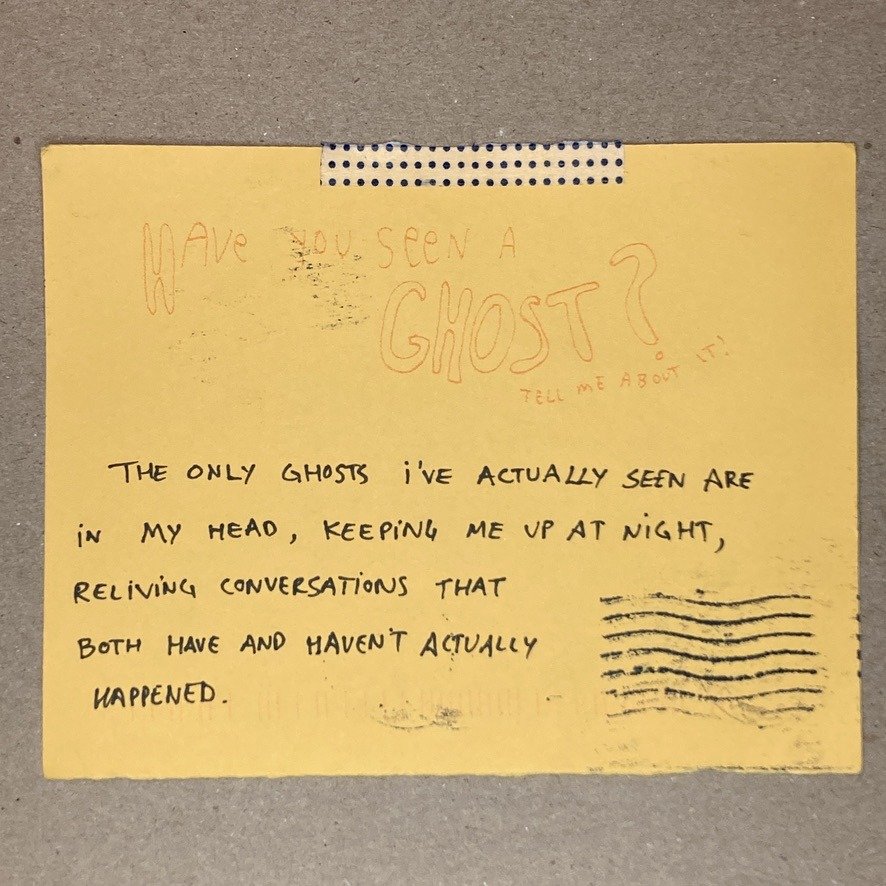 HAVE YOU SEEN A
GHOST?
TELL ME ABOUT IT!
THE ONLY GHOSTS i'VE ACTUALLY SEEN ARE
iN MY HEAD, KEEPiNG ME UP AT NiGHT,
RELiViNG CONVERSATiONS THAT
BOTH HAVE AND HAVEN'T ACTUALLY
HAPPENED.